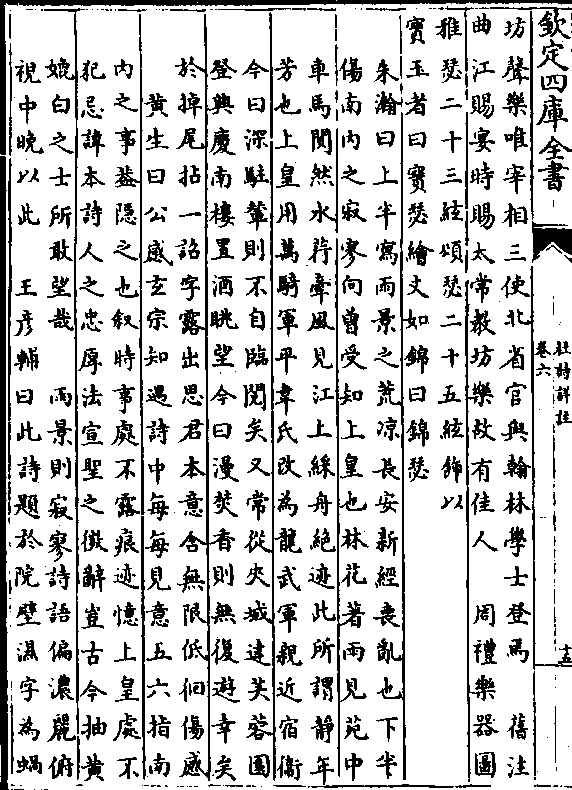 欽定四庫全書
杜詩詳註
卷六
十五
坊聲樂唯宰相三使北省官與翰林學士登焉　舊注
曲江賜宴時賜太常教坊樂故有佳人　周禮樂器圖
雅瑟二十三絃頌瑟二十五絃飾以
寶玉者曰寶瑟繪文如錦曰錦瑟
朱瀚曰上半寫雨景之荒凉長安新經喪亂也下半
傷南内之寂寥向曾受知上皇也林花著雨見苑中
車馬闃然水荇牽風見江上綵舟絶迹此所謂静年
芳也上皇用萬騎軍平韋氏改為龍武軍親近宿衛
今曰深駐輦則不自臨閲矣又常從夾城達芙蓉園
登興慶南樓置酒眺望今曰漫焚香則無復遊幸矣
於掉尾拈一詔字露出思君本意含無限低徊傷感
黄生曰公感玄宗知遇詩中每每見意五六指南
内之事葢隠之也叙時事處不露痕迹憶上皇處不
犯忌諱本詩人之忠厚法宣聖之微辭豈古今抽黄
媲白之士所敢望哉　雨景則寂寥詩語偏濃麗俯
視中晚以此　王彥輔曰此詩題於院壁濕字為蝸